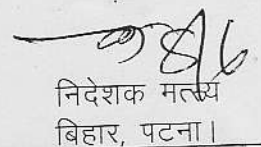 निदेशक मत्स्य
बिहार, पटना।